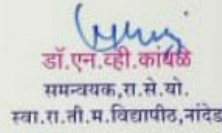 डॉ.एन.व्ही.कांबळे
समन्वयक,रा.से.यो.
स्वा.रा.ती.म.विद्यापीठ,नांदेड